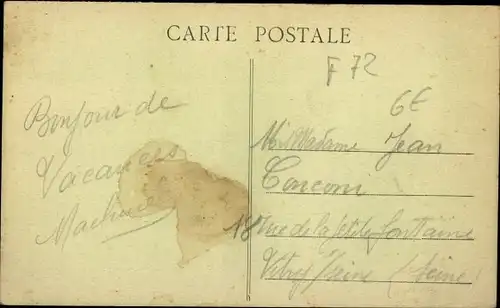 CARTE POSTALE
F 72
6€
Bonjour de
Vacances
Madame Jean
18 rue de la petite fontaine
Vitry /Seine (Seine)